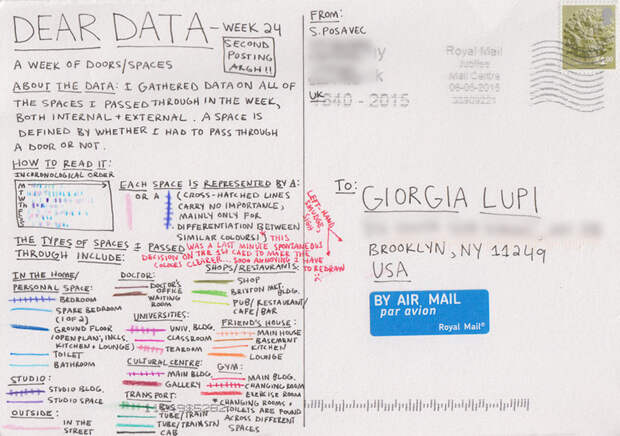 DEAR DATA - WEEK 24
SECOND
POSTING
ARGH!!
A WEEK OF DOORS/SPACES
ABOUT THE DATA: I GATHERED DATA ON ALL OF
THE SPACES I PASSED THROUGH IN THE WEEK,
BOTH INTERNAL + EXTERNAL. A SPACE IS
DEFINED BY WHETHER I HAD TO PASS THROUGH
A DOOR OR NOT.
HOW TO READ IT:
IN CHRONOLOGICAL ORDER
M
T
W
Th
F
S
S
EACH SPACE IS REPRESENTED BY A:
OR A
(CROSS-HATCHED LINES
CARRY NO IMPORTANCE,
MAINLY ONLY FOR
DIFFERENTIATION BETWEEN
SIMILAR COLOURS!)
THIS
WAS A LAST MINUTE SPONTANEOUS
DECISION ON THE 1ST CARD TO MAKE THE
COLOURS CLEARER... SOOO ANNOYING I HAVE
TO REDRAW
LEFT-HAND
SMUDGE,
SIGH
THE TYPES OF SPACES I PASSED
THROUGH INCLUDE:
IN THE HOME/
PERSONAL SPACE:
BEDROOM
SPARE BEDROOM
(1 OR 2)
GROUND FLOOR
(OPEN PLAN, INCLS.
KITCHEN + LOUNGE)
TOILET
BATHROOM
STUDIO:
STUDIO BLDG.
STUDIO SPACE
OUTSIDE:
IN THE
STREET
DOCTOR:
DOCTOR'S
OFFICE
WAITING
ROOM
UNIVERSITIES:
UNIV. BLDG.
CLASSROOM
TEAROOM
CULTURAL CENTRE:
MAIN BLDG.
GALLERY
TRANSPORT:
BUS
TUBE/TRAIN
TUBE/TRAIN STN
CAB
SHOPS/RESTAURANTS:
SHOP
BRIXTON MKT.
BLDG.
PUB/RESTAURANT/
CAFE/BAR
FRIEND'S HOUSE:
MAIN HOUSE
BASEMENT
KITCHEN
LOUNGE
GYM:
MAIN BLDG.
CHANGING ROOM
EXERCISE ROOM
*CHANGING ROOMS +
TOILETS ARE FOUND
ACROSS DIFFERENT
SPACES
FROM:
S. POSAVEC
UK
Royal Mail
Jubilee
Mail Centre
06-05-2015
1840 - 2015
TO: GIORGIA LUPI
BROOKLYN, NY 11249
USA
BY AIR MAIL
par avion
Royal Mail®